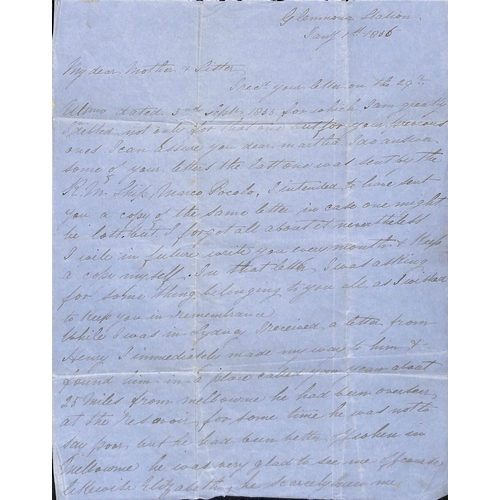 Glenmona Station
Jany 1st 1856
My dear Mother & Sister
I recd your letter on the 29th
Ultimo dated 3rd Septr 1855 for which I am greatly
indebted, not only for that one but for your previous
ones I can assure you dear Martha I do answer
some of your letters the last one was sent by the
R.M. Ship, Marco Pocolo, I intended to have sent
you a copy of the same letter in case one might
be lost but I forgot all about it nevertheless
I will in future write you every month & Keep
a copy myself. In that letter, I was asking
for some thing belonging to you all as I wished
to Keep you in remembrance
While I was in Sydney I received a letter from
Henry I immediately made my way to him &
found him in a place called you yean about
25 miles from melbourne he had been overseer
at the Resavoir for some time he was not to
say poor, but he had been better Spoken in
Melbourne he was very glad to see me Of course,
Likewise Elizabeth, he scarcely knew me